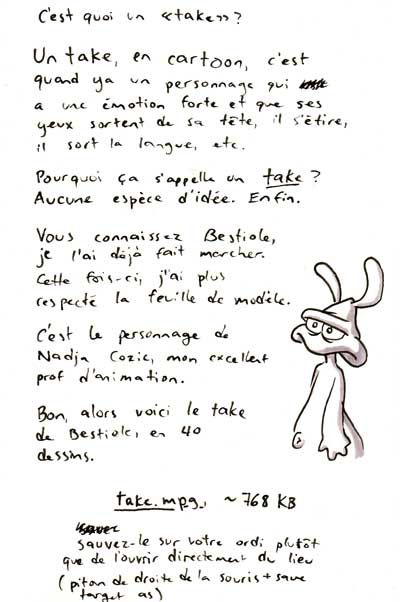 C'est quoi un «take»?
Un take, en cartoon, c'est
quand ya un personnage qui
a une émotion forte et que ses
yeux sortent de sa tête, il s'étire,
il sort la langue, etc.
Pourquoi ça s'appelle un take?
Aucune espèce d'idée. Enfin.
Vous connaissez Bestiole,
je l'ai déjà fait marcher.
Cette fois-ci, j'ai plus
respecté la feuille de modèle.
C'est le personnage de
Nadja Cozic, mon excellent
prof d'animation.
Bon, alors voici le take
de Bestiole, en 40
dessins.
take.mpg, ~768 KB
sauvez-le sur votre ordi plutôt
que de l'ouvrir directement du lieu
(piton de droite de la souris + save
target as)